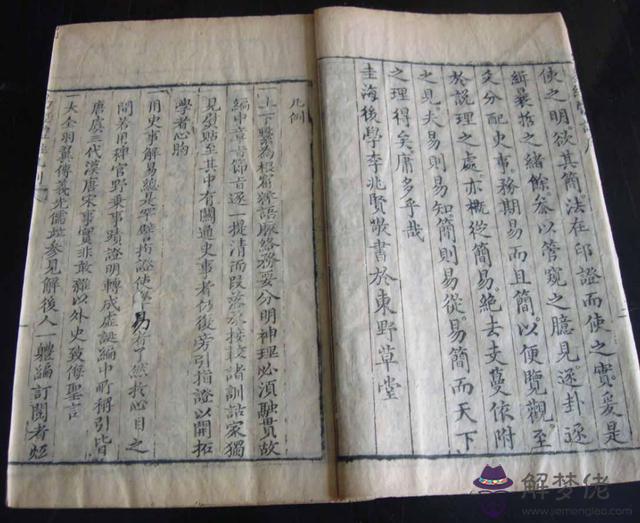 使之明欲其簡法在印證而使之實爰是
緝暴括之緒餘參以管窺之臆見逐卦逐
爻分配史事務期易而且簡以便覽觀至
於說理之處亦概從簡易絕去支蔓依附
之見夫易則易知簡則易從易簡而天下
之理得矣庸多乎哉
圭海後學李兆賢敬書於東野草堂
凡例
一上下繫為根窟辭語脈絡務要分明神理必須融貫故
編中章旨節旨逐一提清而段落承接較諸訓詁家獨
見慰貼至其中有關通史事者仍復旁引指證以開拓
學者心胸
一用史事解易總是罕譬指證使學易者了然於心目之
間若用稗官野乘事蹟證明轉成虛誕編中所稱引皆
唐虞三代漢唐宋事實非敢雜以外史致侮聖言
一大全羽翼傳義先儒
參見解後人一體編訂閱者
解梦佬
www.jiemenglao.com